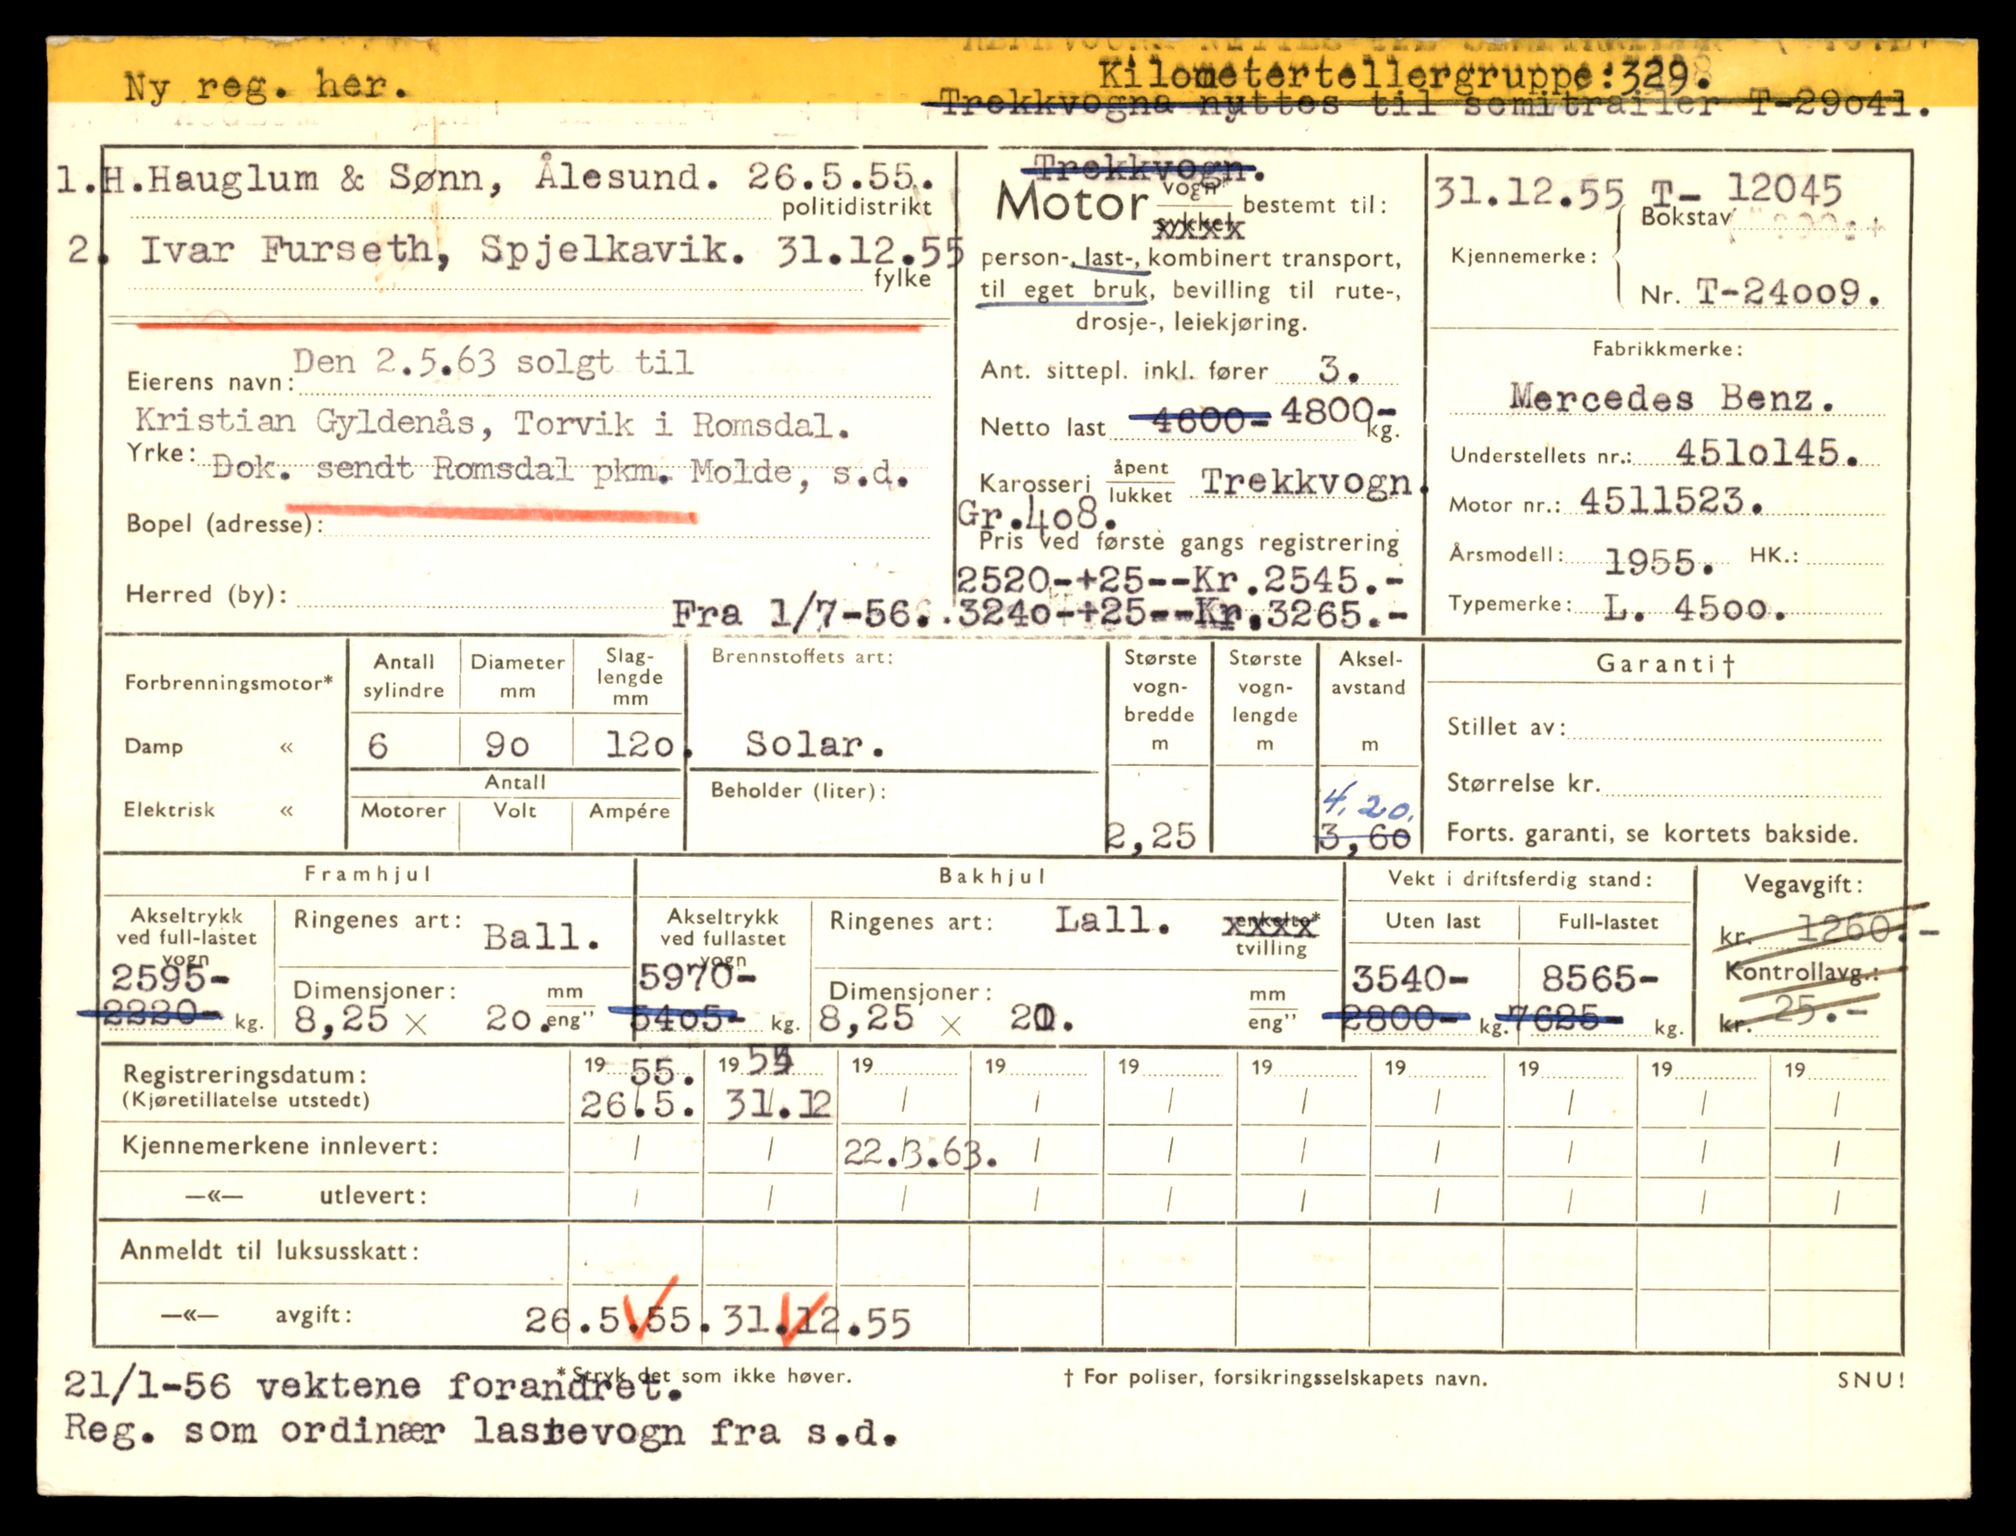 Ny reg. her.
Kilometertellergruppe:329.
Trekkvogna nyttes til semitrailer T-29041.
1.H.Hauglum & Sønn, Ålesund. 26.5.55.
politidistrikt
2. Ivar Furseth, Spjelkavik. 31.12.55
fylke
Den 2.5.63 solgt til
Eierens navn:
Kristian Gyldenås, Torvik i Romsdal.
Yrke: Dok. sendt Romsdal pkm. Molde, s.d.
Bopel (adresse):
Herred (by):
Trekkvogn.
Motor vogn sykkel bestemt til:
person-, last-, kombinert transport,
til eget bruk, bevilling til rute-,
drosje-, leiekjøring.
Ant. sittepl. inkl. fører 3.
Netto last 4600- 4800- kg.
Karosseri åpent lukket Trekkvogn.
Gr.408.
Pris ved første gangs registrering
2520-+25--Kr.2545.-
Fra 1/7-56. 3240-+25--Kr.3265.-
31.12.55 T- 12045
Bokstav
Kjennemerke:
Nr. T-24009.
Fabrikkmerke:
Mercedes Benz.
Understellets nr.: 4510145.
Motor nr.: 4511523.
Årsmodell: 1955. HK.:
Typemerke: L. 4500.
Forbrenningsmotor*
Damp «
Elektrisk «
Antall sylindre
Diameter mm
Slag-lengde mm
6 90 120.
Antall
Motorer Volt Ampére
Brennstoffets art:
Solar.
Beholder (liter):
Største vogn-bredde m
2,25
Største vogn-lengde m
Aksel-avstand m
4.20.
3,60
Garanti†
Stillet av:
Størrelse kr.
Forts. garanti, se kortets bakside.
Framhjul
Akseltrykk ved full-lastet vogn
2595-
2220- kg.
Ringenes art: Ball.
Dimensjoner: mm
8,25 × 20. eng"
Bakhjul
Akseltrykk ved fullastet vogn
5970-
5405- kg.
Ringenes art: Lall. enkelte* tvilling
Dimensjoner: mm
8,25 × 20. eng"
Vekt i driftsferdig stand:
Uten last Full-lastet
3540- 8565-
2800- kg. 7625- kg.
Vegavgift:
kr. 1260.-
Kontrollavg.:
kr. 25.-
Registreringsdatum: 19 55. 19 55 19 19 19 19 19 19 19 19
(Kjøretillatelse utstedt) 26.5. 31.12 / / / / / / / /
Kjennemerkene innlevert: / / 22.3.63. / / / / / / /
—«— utlevert: / / / / / / / / / /
Anmeldt til luksusskatt:
—«— avgift: 26.5.55. 31.12.55
* Stryk det som ikke høver.
† For poliser, forsikringsselskapets navn.
SNU!
21/1-56 vektene forandret.
Reg. som ordinær lastevogn fra s.d.